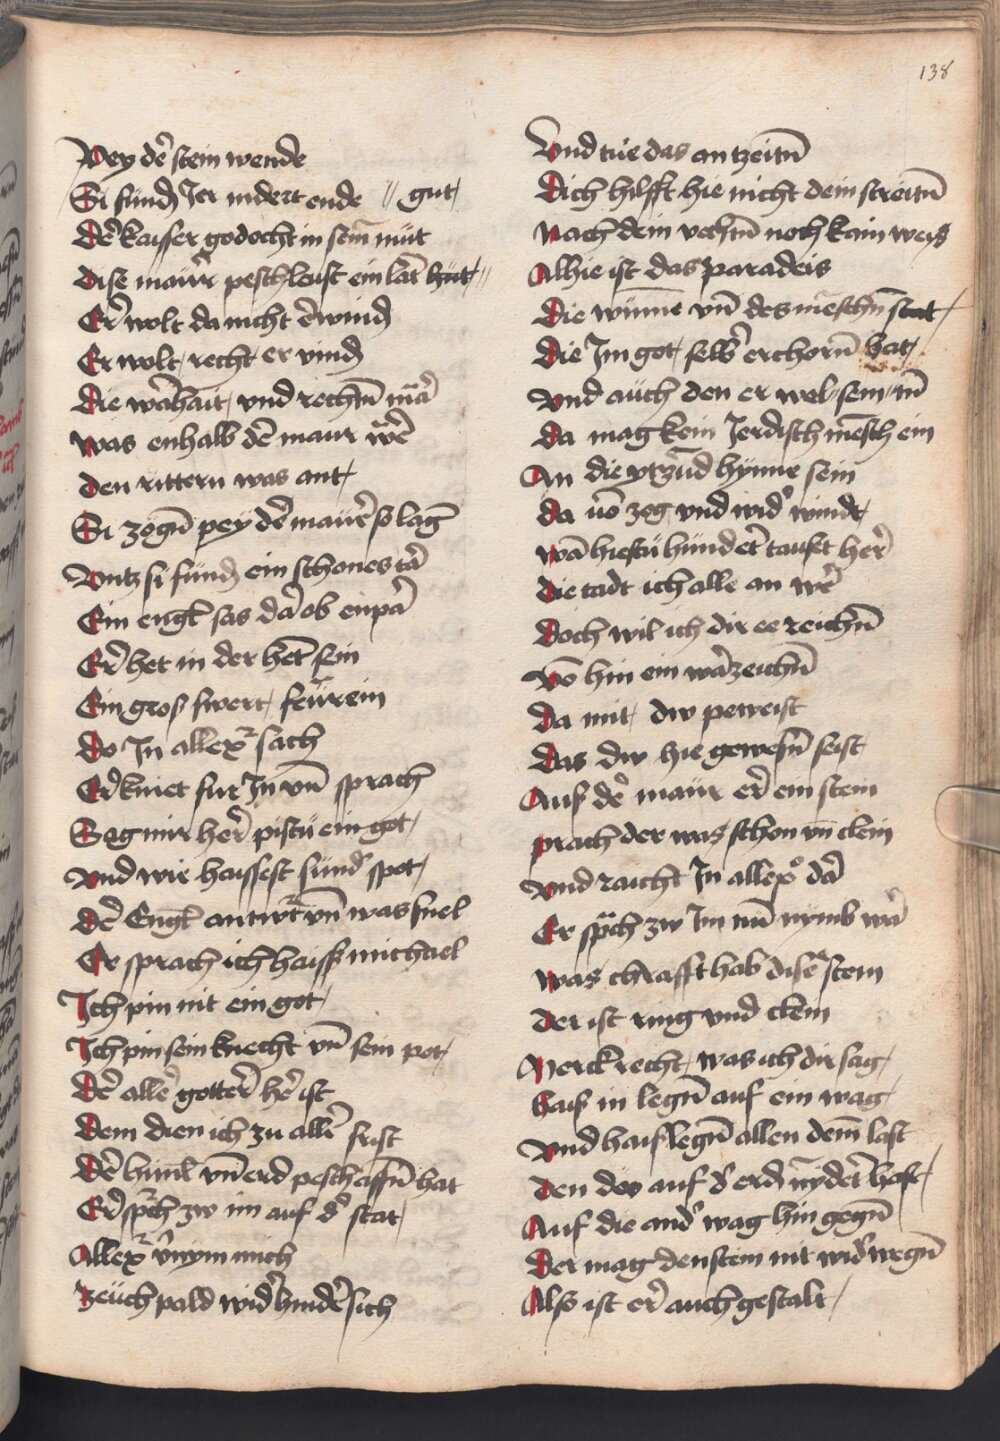 138
Pey der stein wende
Si fundn Jer indert ende // gut
Der kaisser gedocht in seim müt
Dise maurr peschleust ein lant hüt //
Er wolt da nicht erwindn
Er wolt recht er vindn
Die warhait vnd rechtn mär
Was enhalb der maur wer
Den rittern was ant
Si zogn pey der maurer so lang
Vntz si fundn ein schones tar
Ein engl sas dar ob enpar
Er het in der hent sein
Ein gros swert feurrein
Do Jn allexr sach
Er kniet fur Jn vn sprach
Sag mir herr pistu ein got
Vnd wie haissest sundr spot
Der Engl antwrt vn was snel
Er sprach ich haiss michael
Ich pin nit ein got
Ich pin sein knecht vn sein pot
Der aller gotter her ist
Dem dien ich zu aller frist
Der himl vn erd peschaffn hat
Er sprch zw im auf dr stat
Allexr vrnym mich
Zeuch pald widr hinder sich
Vnd tue das an tzeitn
Dich hilfft hie nicht dein streitn
Nach dein vechtn noch kain weis
Alhie ist das paradeis
Die wunne vn des menschn stat
Die Im got selbr erchorn hat
Vnd auch den er wel sein tn
Da mag kein Jerdisch mensch ein
An die ytzund hynne sein
Da von zog vnd widr windt
Wan hiestu hundert tausent her
Die tadt ich alle an wer
Doch wil ich dir ee reichn
Von hin ein warzeichn
Da mit dw peweist
Das dw hie gewesn seist
Auss der maur er ein stein
prach der was schon vn clein
Vnd raicht Jn allexo dar
Er sprch zw Im nu nymb war
Was chrafft hab diser stein
Der ist ring vnd clein
Merck recht was ich dir sag
Hais in legn auf ein wag
Vnd hais legn allen dem last
Den dw auf dr erdn nydert hast
Auf die andr wag hin gegn
Der mag den stein nit widr wegn
Also ist er auch gestalt